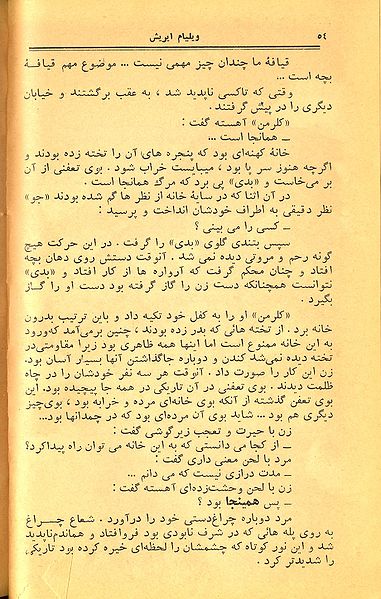 ٥٤ ویلیام ایریش
قیافهٔ ما چندان چیز مهمی نیست ... موضوع مهم قیافهٔ
بچه است ...
وقتی که تاکسی ناپدید شد ، به عقب برگشتند و خیابان
دیگری را در پیش گرفتند .
«کلرمن» آهسته گفت :
ــ همانجا است ...
خانهٔ کهنه‌ای بود که پنجره های آن را تخته زده بودند و
اگرچه هنوز سر پا بود ، میبایست خراب شود . بوی تعفنی از آن
بر می‌خاست و «بدی» پی برد که مرگ همانجا است .
در آن اثنا که در سایهٔ خانه از نظر ها گم شده بودند «جو»
نظر دقیقی به اطراف خودشان انداخت و پرسید :
ــ کسی را می بینی ؟
سپس بتندی گلوی «بدی» را گرفت . در این حرکت هیچ
گونه رحم و مروتی دیده نمی شد . آنوقت دستش روی دهان بچه
افتاد و چنان محکم گرفت که آرواره ها از کار افتاد و «بدی»
نتوانست همچنانکه دست زن را گاز گرفته بود دست او را گاز
بگیرد .
«کلرمن» او را به کفل خود تکیه داد و باین ترتیب بدرون
خانه برد . از تخته هائی که بدر زده بودند ، چنین برمی‌آمد که‌ورود
به این خانه ممنوع است اما اینها همه ظاهری بود زیرا مقاومتی‌در
تخته دیده نمی‌شد کندن و دوباره جاگذاشتن آنها بسیار آسان بود.
زن این کار را صورت داد . آنوقت هر سه نفر خودشان را در چاه
ظلمت دیدند . بوی تعفنی در آن تاریکی در همه جا پیچیده بود. این
بوی تعفن گذشته از آنکه بوی خانه‌ای مرده و خرابه بود ، بوی‌چیز
دیگری هم بود ... شاید بوی آن مرده‌ای بود که در چمدانها بود...
زن با حیرت و تعجب زیرگوشی گفت :
ــ از کجا می دانستی که به این خانه می توان راه پیداکرد؟
مرد با لحن معنی داری گفت :
ــ مدت درازی نیست که می دانم ...
زن با لحن وحشت‌زده‌ای آهسته گفت :
ــ پس همینجا بود ؟
مرد دوباره چراغ‌دستی خود را درآورد . شعاع چــراغ
به روی پله هائی که در شرف نابودی بود فروافتاد و هماندم‌ناپدید
شد و این نور کوتاه که چشمشان را لحظه‌ای خیره کرده بود تاریکی
را شدیدتر کرد .